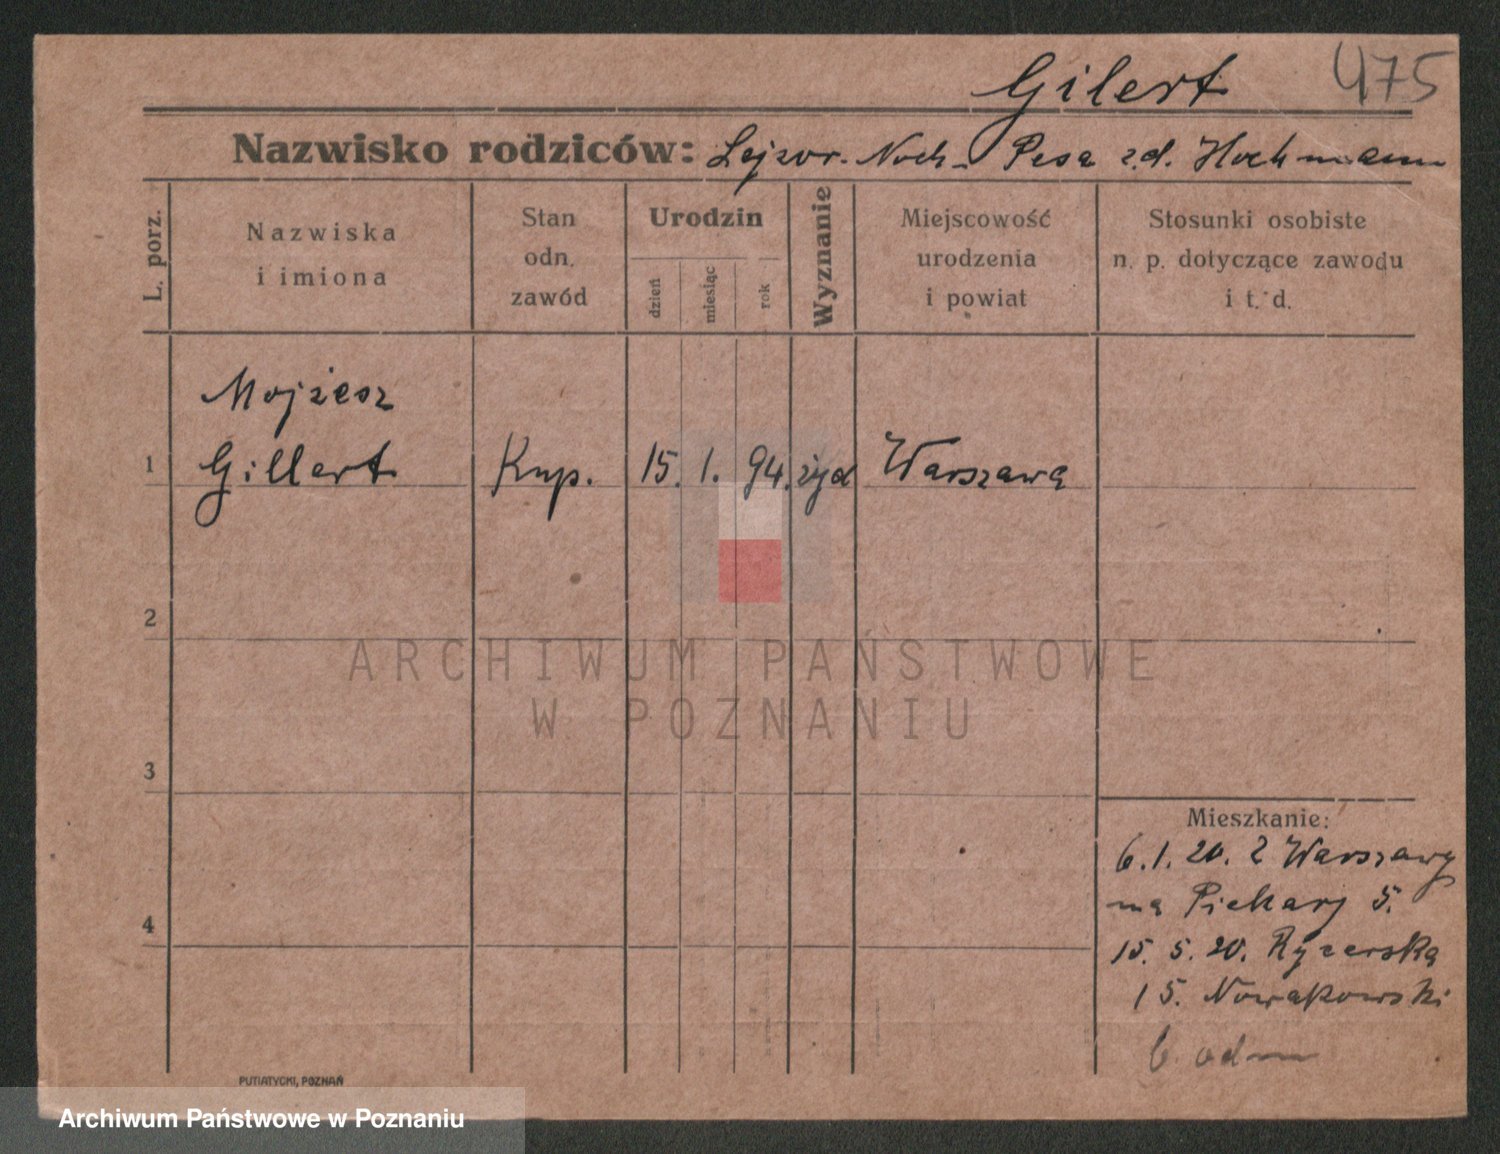 Gilert 475
Nazwisko rodziców: Lejzor. Noch - Pesa z.d. Hochmann
L. porz.
Nazwiska
i imiona
Stan
odn.
zawód
Urodzin
dzień
miesiąc
rok
Wyznanie
Miejscowość
urodzenia
i powiat
Stosunki osobiste
n. p. dotyczące zawodu
i t. d.
Mojżesz
1 Gillert Kup. 15. 1. 94. żyd Warszawa
2
ARCHIWUM PAŃSTWOWE
W POZNANIU
3
Mieszkanie:
6.1.20. z Warszawy
na Piekary 5.
4
15. 5. 20. Rycerska
15. Nowakowski
b. odm
PUTIATYCKI, POZNAŃ
Archiwum Państwowe w Poznaniu